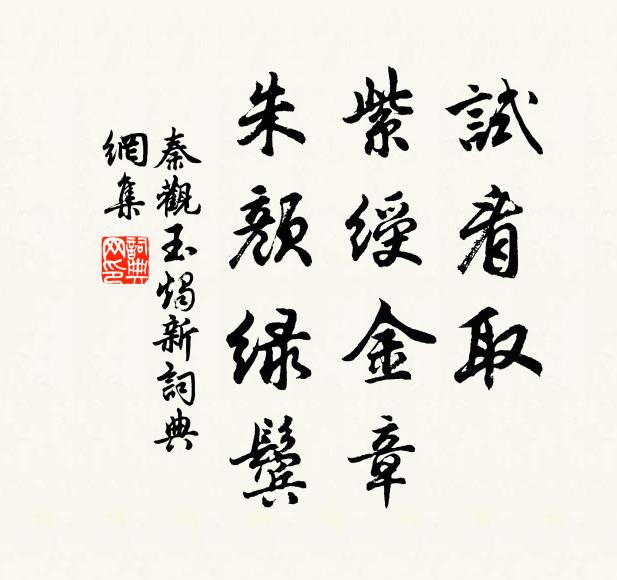 試看取
紫綬金章
朱顏緑鬢
秦觀玉燭新詞典
網集
詞典
网印